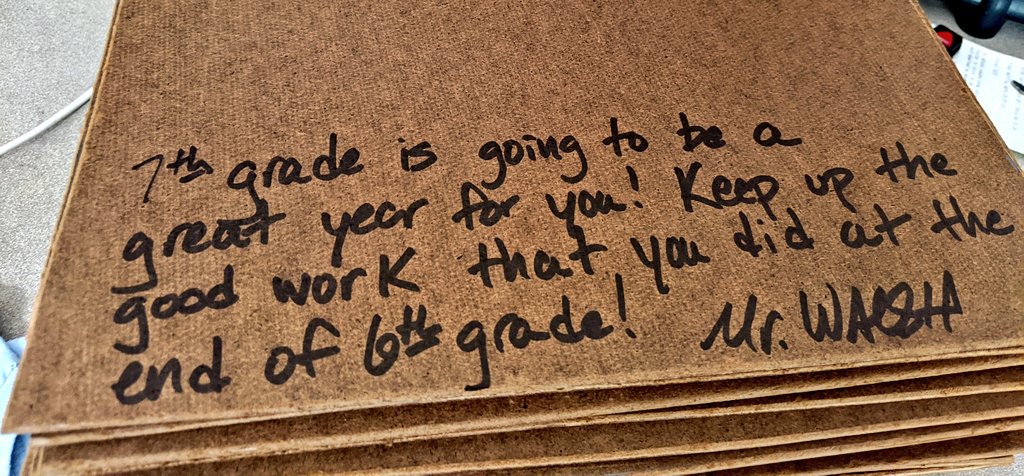 7th grade is going to be a
great year for you! Keep up the
good work that you did at the
end of 6th grade! Mr. WALSH